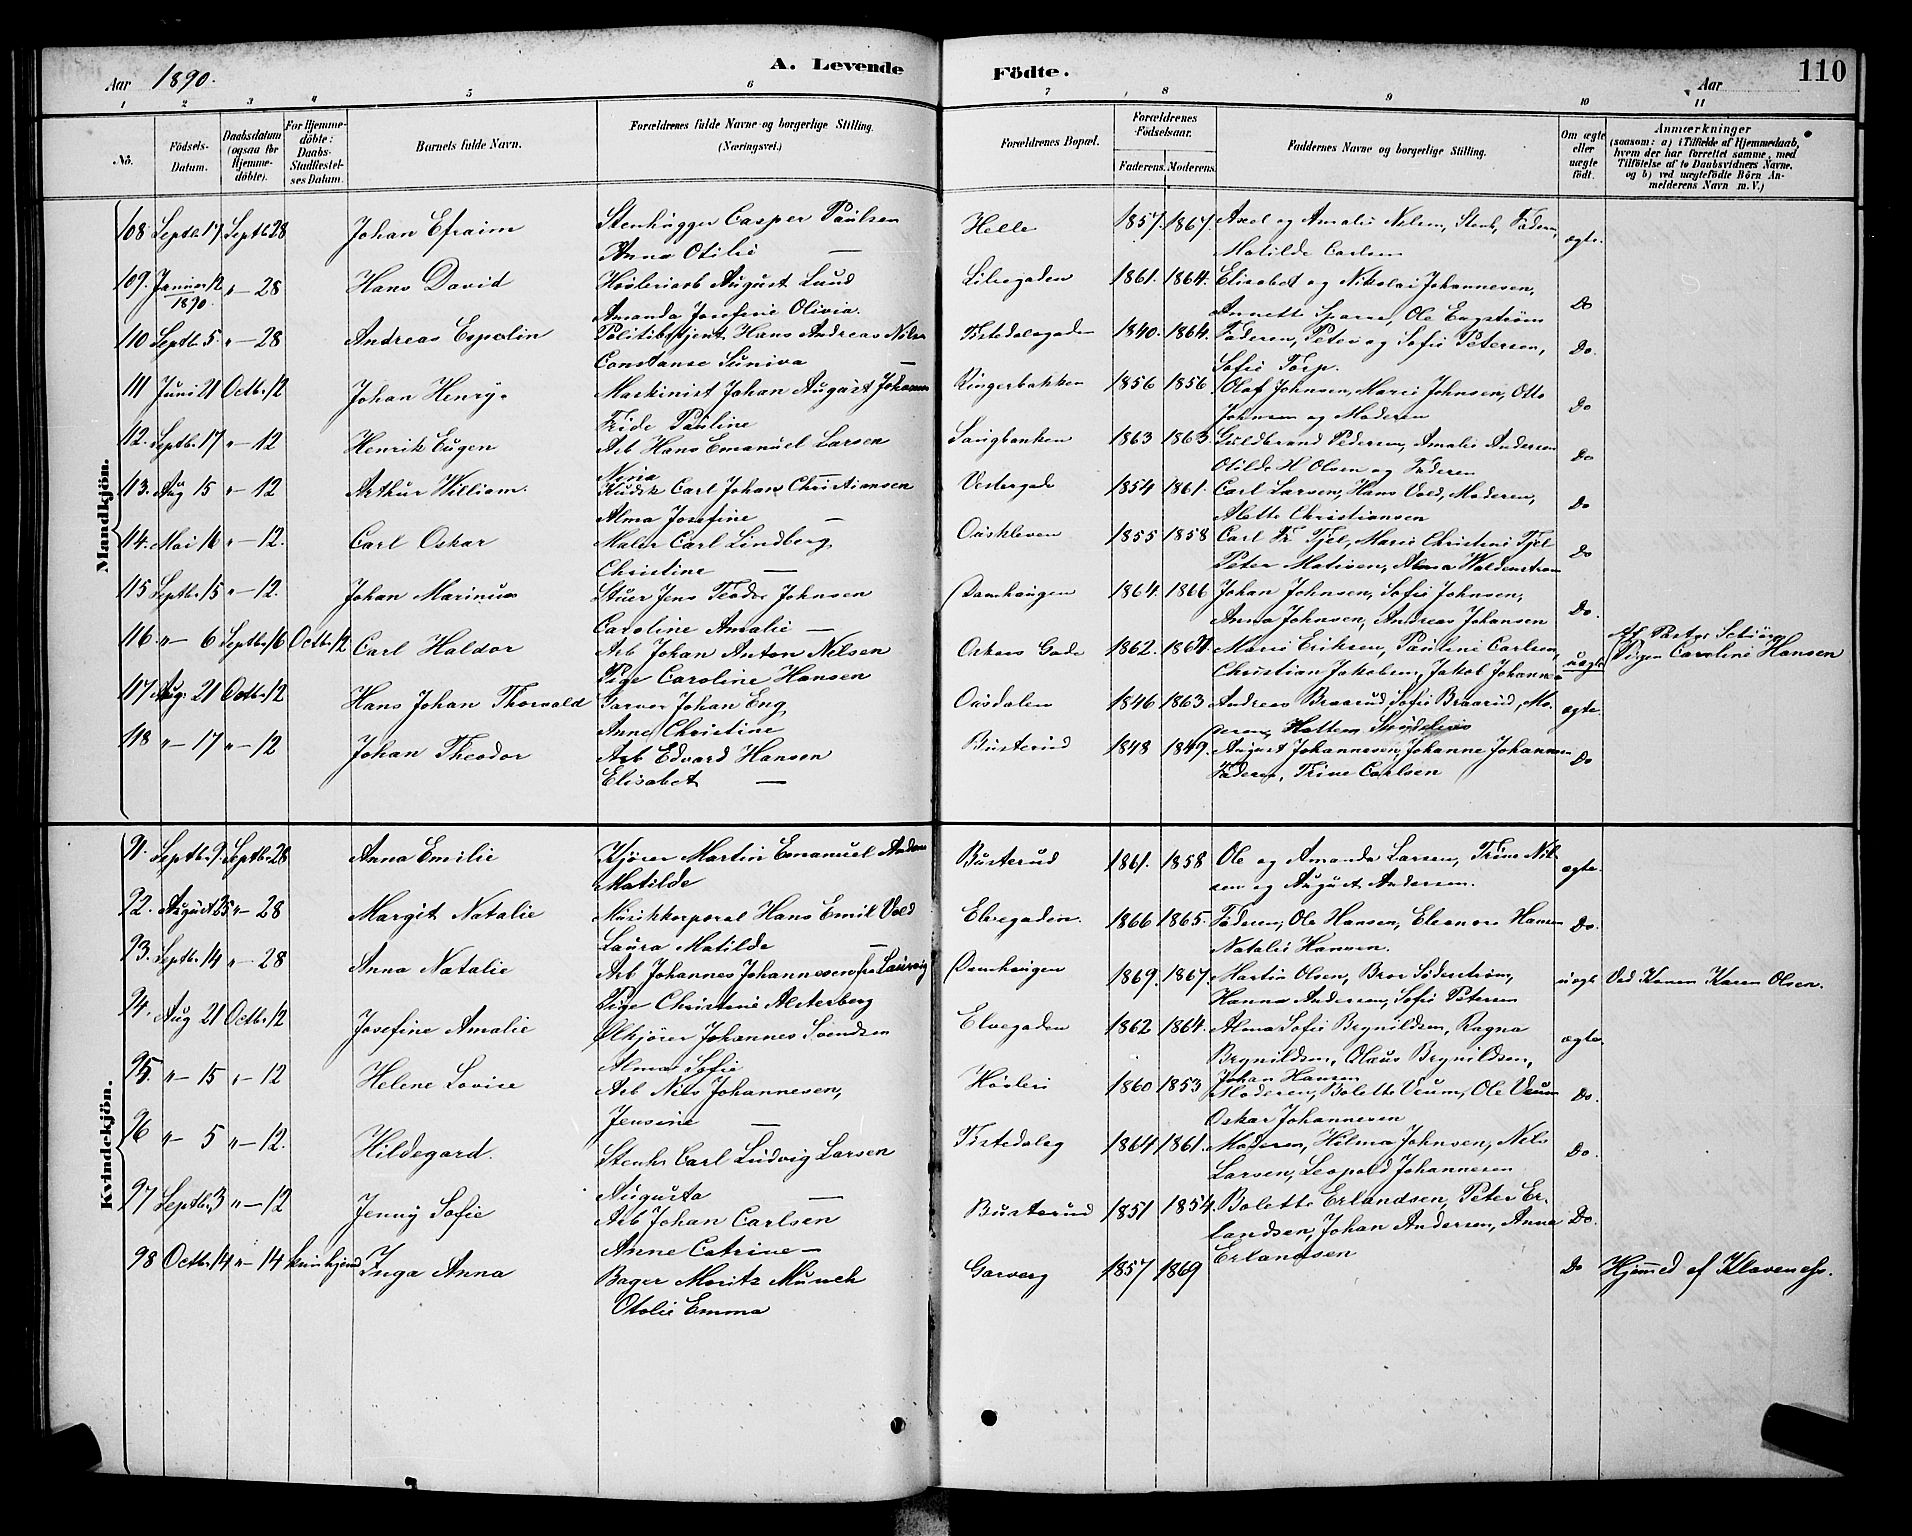 Aar 1890. A. Levende Födte. Aar 110
1 2 3 4 5 6 7 8 9 10 11
Nö. Födsels-Datum. Daabsdatum (ogsaa for Hjemme-döbte). For Hjemme-döbte: Daabs-Stadfæstel-ses Datum. Barnets fulde Navn. Forældrenes fulde Navne og borgerlige Stilling. (Næringsvei.) Forældrenes Bopæl. Forældrenes Födselsaar. Faderens. Moderens. Faddernes Navne og borgerlige Stilling. Om ægte eller uægte födt. Anmærkninger (saasom: a) i Tilfælde af Hjemmedaab, hvem der har forrettet samme, med Tilföielse af to Daabsvidners Navne, og b) ved uægtefödte Börn An-melderens Navn m. V.)
Mandkjön.
108 Septb. 17 Septb. 28 Johan Efraim Stenhugger Casper Paulsen Helle 1857. 1867. Axel og Amalie Nilsen, Stenh, Faderen,
Anna Otilie — Matilde Carlsen ægte.
109. Januar 12 1890. " — 28 Hans David August Lund 1861. 1864. Elisabet og Nikolai Johannesen,
Amanda Josefine Olivia. Annette Sparre, Ole Engström Do
110 Septb. 5. " — 28 Andreas Espolin Politibetjent Hans Andreas Nilsen Tistedalsgaden 1840. 1864. Faderen, Peter og Sofie Petersen,
Constanse Suniva — Sofie Torp. Do.
111 Juni 21 Octb. 12 Johan Henry. Maskinist Johan August Johansen 1856 1856 Olaf Johnsen, Marie Johnsen, Otto
Fride Pauline Johnsen og Moderen Do
12. Septb. 17 " — 12 Henrik Eugen Arb Hans Emanuel Larsen Saugbanken 1863 1863. Guldbrand Pedersen, Amalie Andersen
Nina Otilde H Olsen og Faderen Do
13. Aug 15 " — 12 Arthur William. Kudsk Carl Johan Christiansen Vestergade 1854 1861. Carl Larsen, Hans Vold, Moderen,
Alma Josefine — Alette Christiansen Do
14. Mai 16 " — 12. Carl Oskar Maler Carl Lindberg, 1855 1858 Carl Fr. Tjel, Marie Christine Tjel
Christine — Peter Matisen, Alma Waldenstrøm Do
115 Septb. 15 " — 12. Johan Marinus Stuer Jens Teodor Johnsen Damhaugen 1864. 1866 Johan Johnsen, Sofie Johnsen,
Caroline Amalie — Anna Johnsen, Andreas Johansen Do.
116. " — 6 Septb. 16 Octb. 12 Carl Haldor Arb Johan Anton Nilsen Oskars Gade 1862. Marie Eriksen, Pauline Carlsen, Af Pastor
Pige Caroline Hansen Christian Jakobsen, Jakob uægte Pigen Caroline Hansen
117 Aug. 21 Octb. 12 Hans Johan Thorvald Garver Johan Eng, 1846 1863 Andreas Braarud, Sofie Braarud, Mo-
Anne Christine deren, ægte.
118 " — 17 " — 12 Johan Theodor Arb Edvard Hansen Busterud 1848 1849. August Johannesen, Johanne Johannesen
Elisabet — Faderen, Trine Carlsen Do
Kvindekjön.
91. Septb. 9. Septb. 28 Anna Emilie Kjører Martin Emanuel Andersen Busterud 1861. 1858 Ole og Amanda Larsen, Trine Nil-
Matilde sen og August Andersen. ægte.
92. August 25 " — 28 Margit Natalie Musikkorporal Hans Emil Vold Elvegaden. 1866 1865. Faderen, Ole Hansen, Eleonore Hansen
Laura Matilde — Natalie Hansen. Do.
93. Septb. 14 " — 28 Anna Natalie Arb Johannes Johannesen fra Laurvig Damhaugen 1869. 1867. Martin Olsen, Bror Söderstrøm, uægte Ved Konen Karen Olsen.
Pige Christine Alsterberg Hanna Andersen, Sofie Petersen
94. Aug 21 Octb. 12 Josefine Amalie Ølkjører Johannes Svendsen Elvegaden 1862 1864. Alma Sofie Brynildsen, Ragna
Alma Sofie Brynildsen, Olaus Brynildsen, ægte.
Johan Hansen
95. " — 15 " — 12 Helene Lovise Arb Nils Johannesen, 1860 1853 Moderen, Bolette Veum, Ole Veum
Jensine — Oskar Johannesen Do.
96 " — 5 " — 12. Hildegard. Stenh. Carl Ludvig Larsen Tistedalsg 1864 1861. Moderen, Hilma Johnsen, Nils
Augusta — Larsen, Leopold Johannesen Do.
97 Septb. 3 " — 12 Jenny Sofie Arb Johan Carlsen Busterud 1851 1854. Bolette Erlandsen, Peter Er-
Anne Catrine — landsen, Johan Andersen, Anna Do.
Erlandsen
98 Octb. 14 " — 14 Inga Anna Bager Moritz Munch Garverg 1857 1869 Do Hjemmed af Klaveness.
Otolie Emma